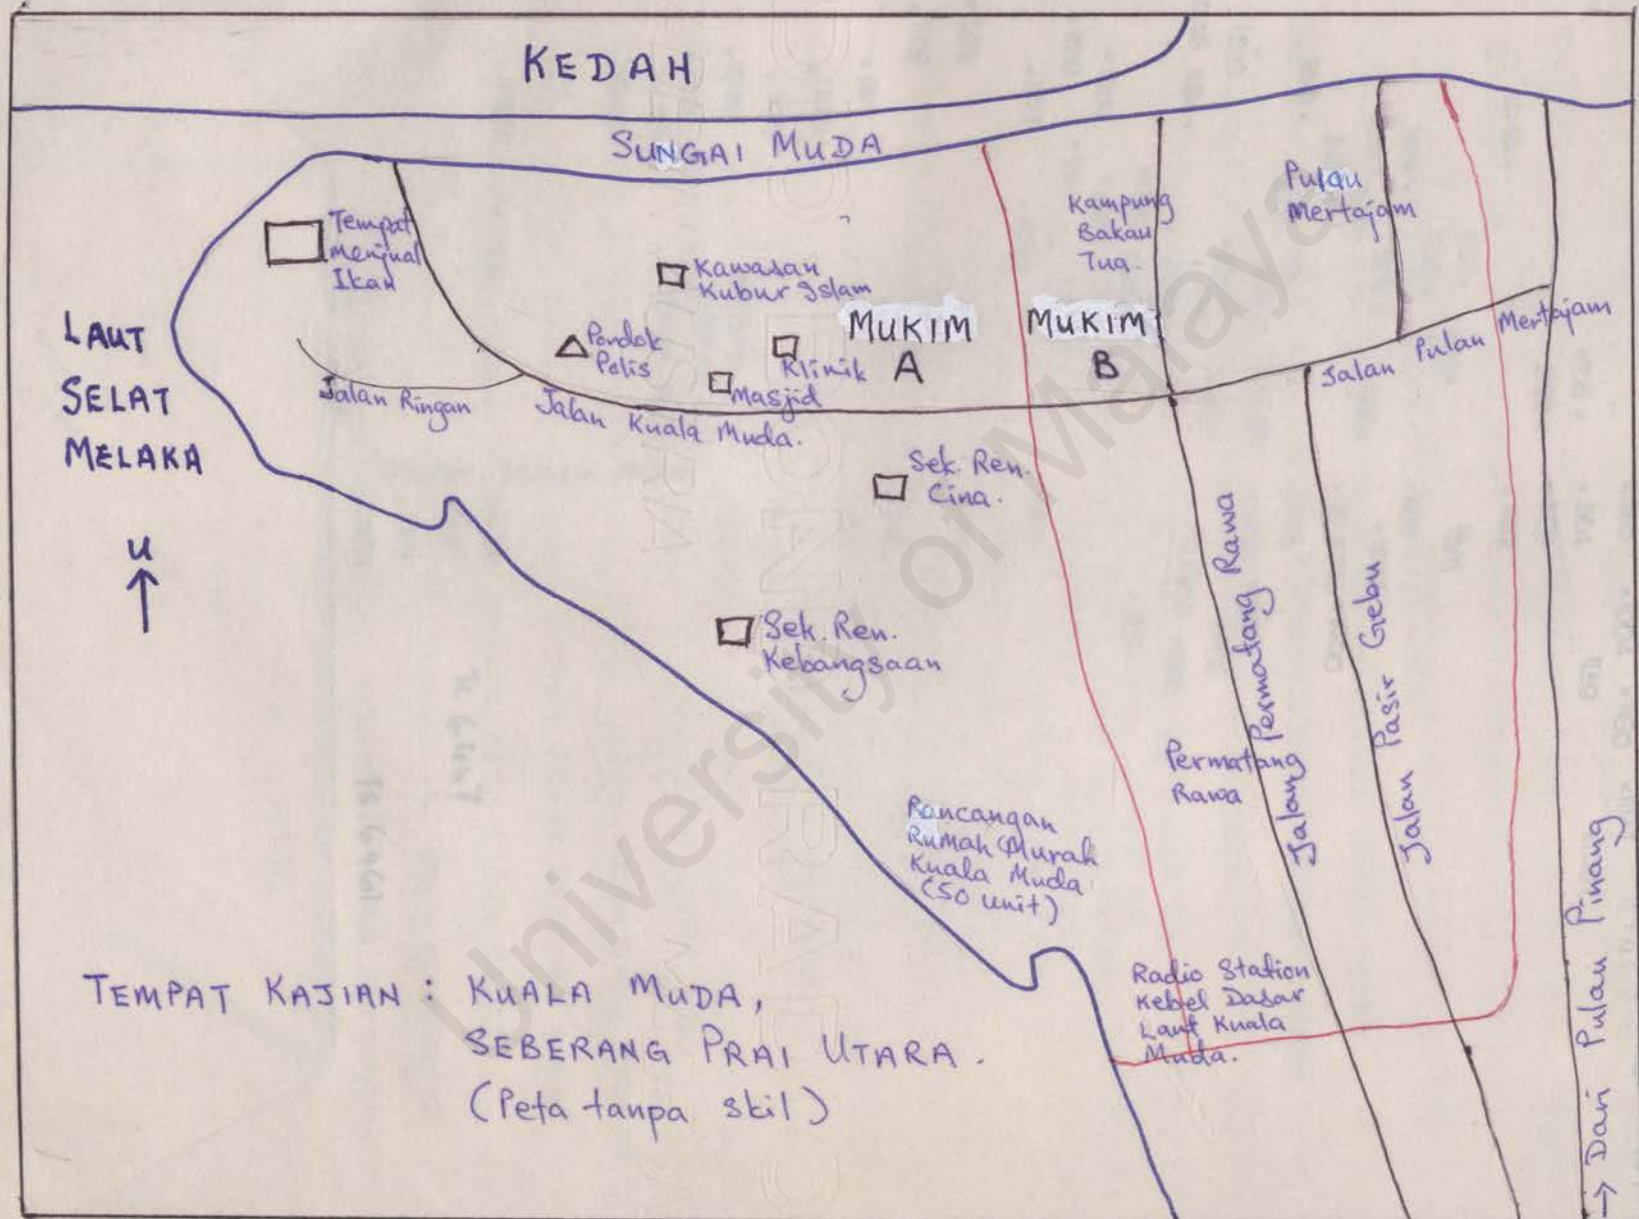 KEDAH
SUNGAI MUDA
Tempat
Menjual
Ikan
Kawasan
Kubur Islam
Kampung
Bakau
Tua.
Pulau
Mertajam
LAUT
SELAT
MELAKA
Pondok
Polis
Klinik
Masjid
MUKIM
A
MUKIM
B
Jalan Pulau Mertajam
Jalan Ringan
Jalan Kuala Muda.
Sek. Ren.
Cina.
U
Sek. Ren.
Kebangsaan
Jalan Permatang Rawa
Jalan Pasir Gebu
Permatang
Rawa
Rancangan
Rumah Murah
Kuala Muda
(50 unit)
Radio Station
Kebel Dasar
Laut Kuala
Muda.
→ Dari Pulau Pinang
TEMPAT KAJIAN : KUALA MUDA,
SEBERANG PRAI UTARA.
(Peta tanpa skil)
University of Malaya